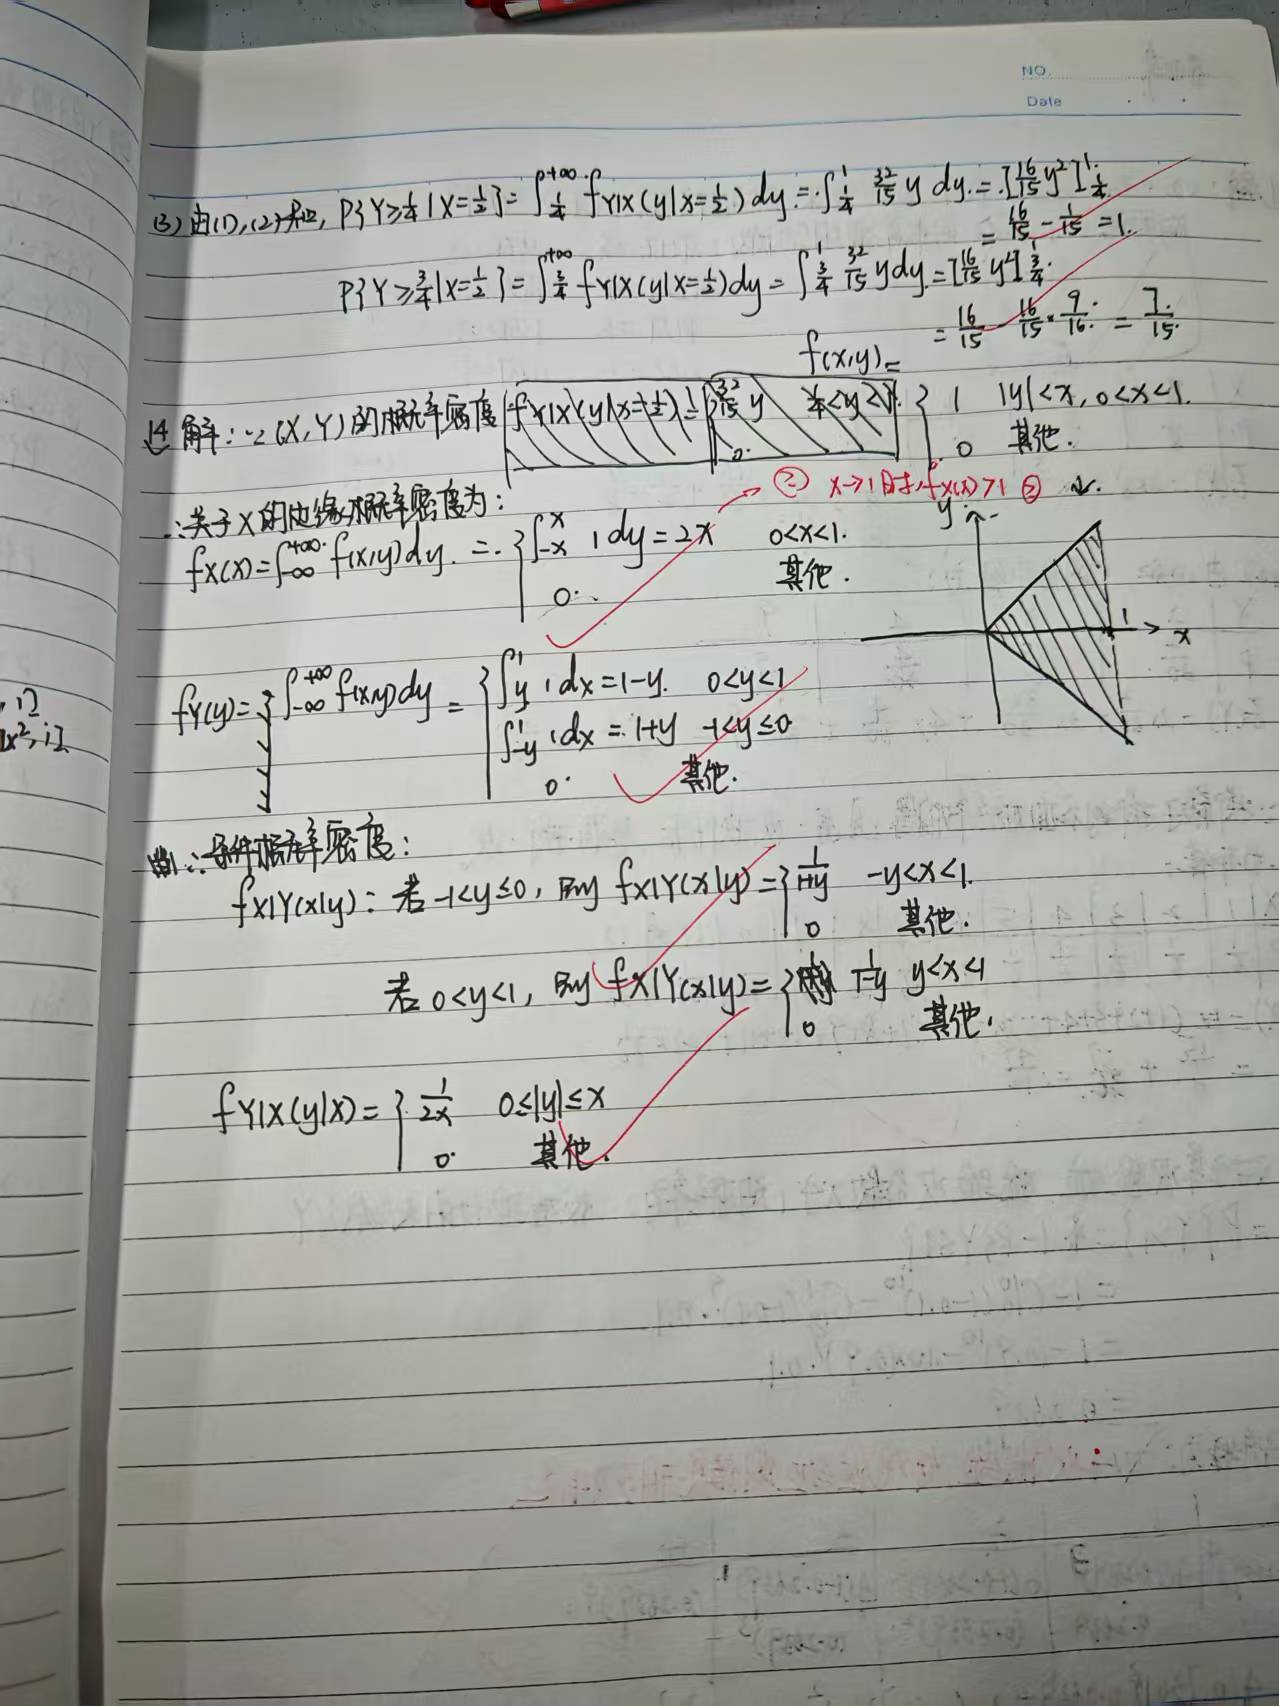 NO.
Date
(3) 由(1),(2)知, P{Y≥1/4|X=1/2}=∫_{1/4}^{+∞} f_{Y|X}(y|x=1/2)dy=∫_{1/4}^{1} 32/15 y dy=[16/15 y²]_{1/4}^{1}
=16/15-1/15=1.
P{Y≥3/4|X=1/2}=∫_{3/4}^{+∞} f_{Y|X}(y|x=1/2)dy=∫_{3/4}^{1} 32/15 y dy=[16/15 y²]_{3/4}^{1}
=16/15-16/15×9/16=7/15.
f(x,y)=
14 解:∵(X,Y)的概率密度 { 1 |y|<x, 0<x<1.
0 其他.
② x→1时,f_X(x)>1 ②
∴关于X的边缘概率密度为:
f_X(x)=∫_{-∞}^{+∞} f(x,y)dy = { ∫_{-x}^{x} 1dy=2x 0<x<1.
0. 其他.
y
1
x
f_Y(y)= ∫_{-∞}^{+∞} f(x,y)dy = { ∫_{y}^{1} 1dx=1-y. 0<y<1
∫_{-y}^{1} 1dx=1+y -1<y≤0
0. 其他.
∴条件概率密度:
f_{X|Y}(x|y): 若-1<y≤0, 则f_{X|Y}(x|y)={ 1/(1+y) -y<x<1.
0 其他.
若0<y<1, 则f_{X|Y}(x|y)={ 1/(1-y) y<x<1
0 其他.
f_{Y|X}(y|x)={ 1/(2x) 0≤|y|≤x
0. 其他.